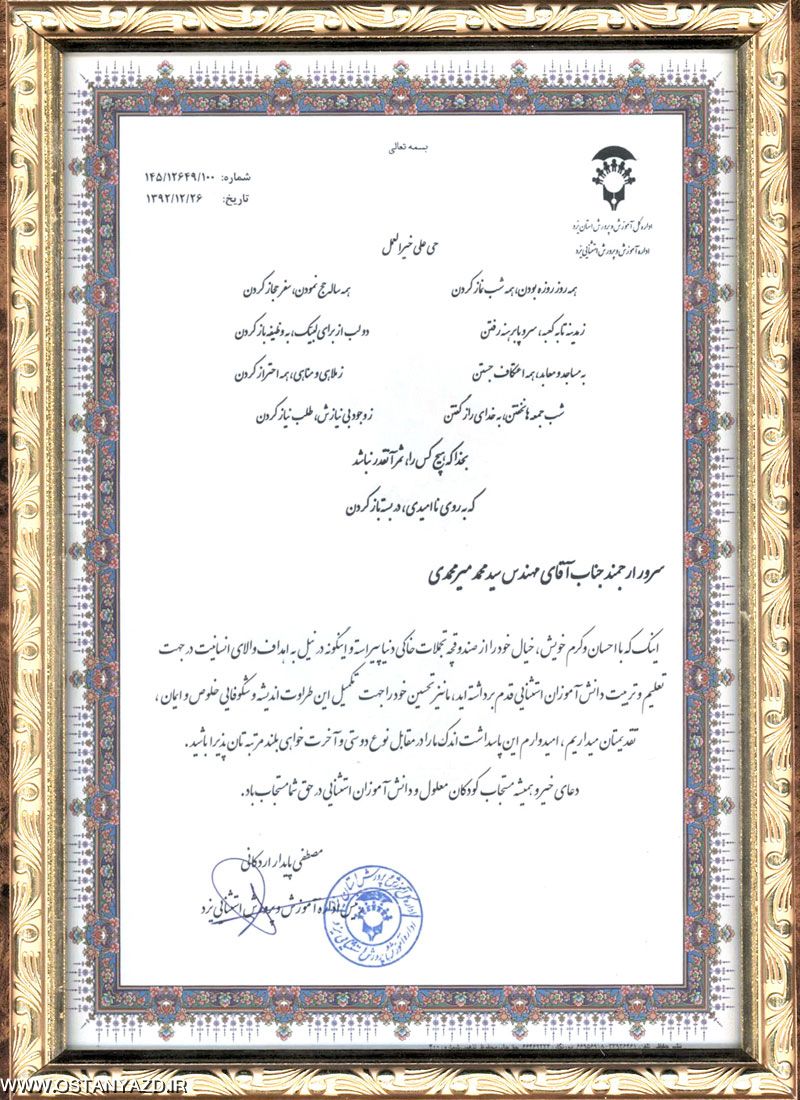 بسمه تعالی
شماره: ۱۴۵/۱۲۶۴۹/۱۰۰
تاریخ: ۱۳۹۲/۱۲/۲۶
اداره کل آموزش و پرورش استان یزد
اداره آموزش و پرورش استثنایی یزد
حی علی خیر العمل
همه روز روزه بودن، همه شب نماز کردن همه ساله حج نمودن، سفر حجاز کردن
ز مدینه تا به کعبه، سر و پا برهنه رفتن دو لب از برای لبیک، به وظیفه باز کردن
به مساجد و معابد، همه اعتکاف جستن ز ملاهی و مناهی، همه احتراز کردن
شب جمعه ها نخفتن، به خدای راز گفتن ز وجود بی نیازش، طلب نیاز کردن
بخدا که هیچ کس را، ثمر آنقدر نباشد
که به روی ناامیدی، در بسته باز کردن
سرور ارجمند جناب آقای مهندس سید محمد میرمحمدی
اینک که با احسان و کرم خویش، خیال خود را از صندوقچه تجملات خاکی دنیا پیراسته و اینگونه در نیل به اهداف والای انسانیت در جهت
تعلیم و تربیت دانش آموزان استثنایی قدم برداشته اید، ما نیز تحسین خود را جهت تکمیل این طراوت اندیشه و شکوفایی خلوص و ایمان،
تقدیمتان میداریم، امیدوارم این پاسداشت اندک ما را در مقابل نوع دوستی و آخرت خواهی بلند مرتبه تان پذیرا باشید.
دعای خیر و همیشه مستجاب کودکان معلول و دانش آموزان استثنایی در حق شما مستجاب باد.
مصطفی پایدار اردکانی
رئیس اداره آموزش و پرورش استثنایی یزد
WWW.OSTANYAZD.IR